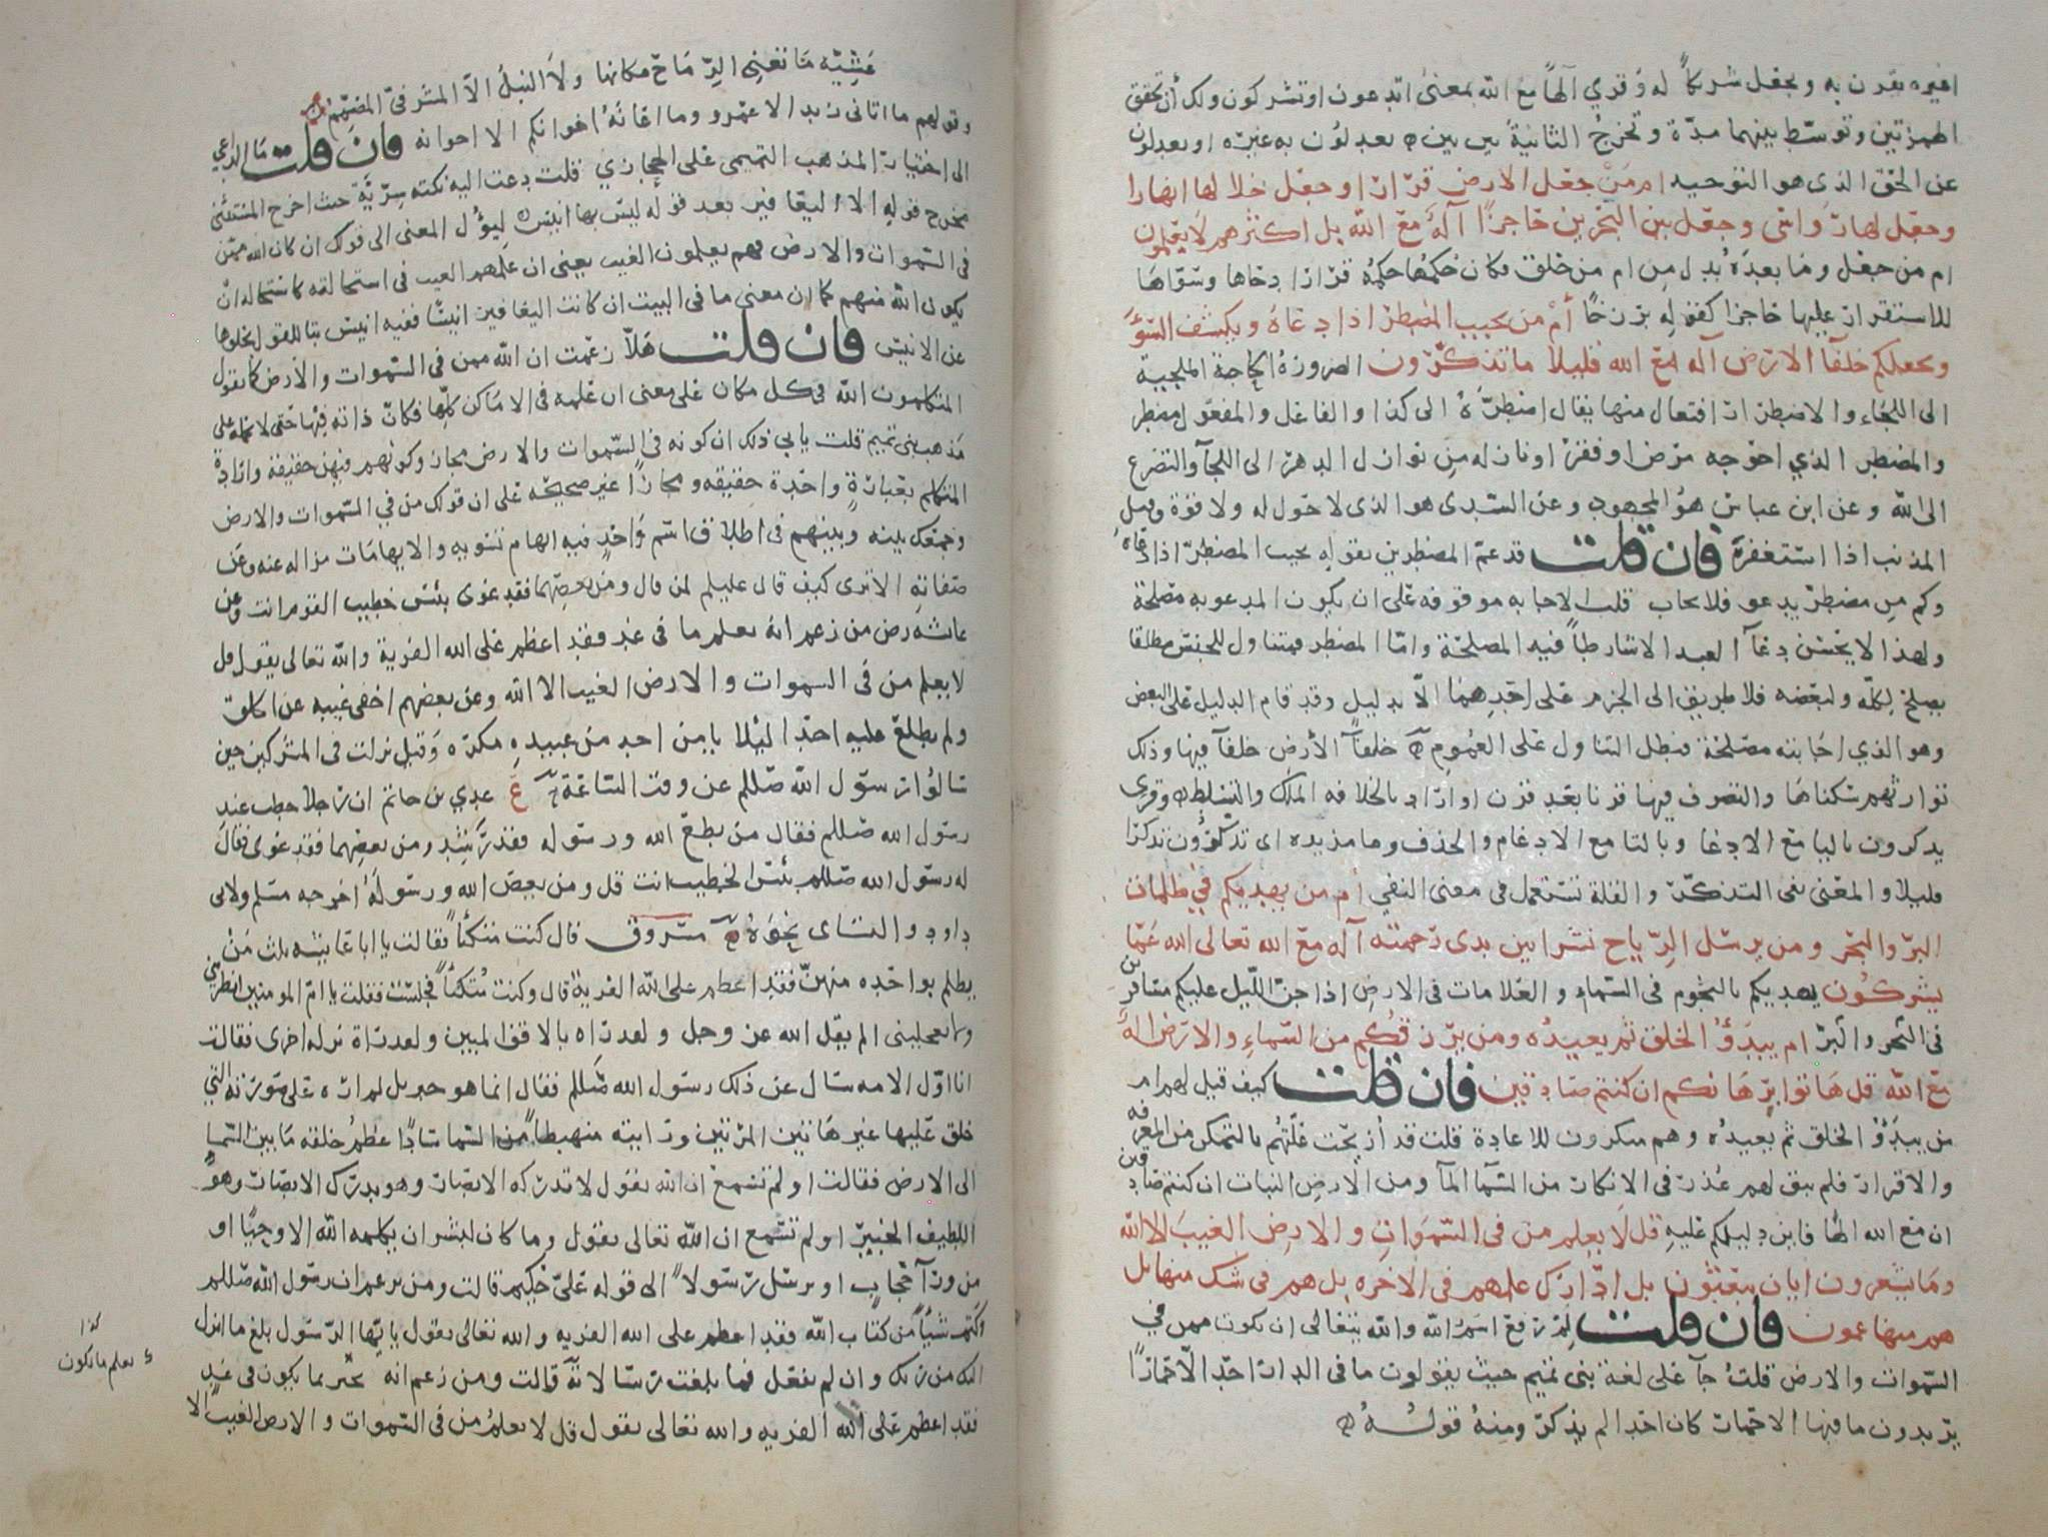 اغيره يقرن به ويجعل شركاً له وقري آلهاً مع الله بمعنى اتدعون اوتشركون ولك أن تحقق
الهمزتين وتوسّط بينهما مدّة وتخرج الثانية بين بين ه يعدلون به غيره او يعدلون
عن الحق الذى هو التوحيد ام من جعل الارض قرارا وجعل خلالها انهارا
وجعل لها رواسى وجعل بين البحرين حاجزًا آله مع الله بل اكثرهم لا يعلمون
ام من جعل وما بعده بدل من ام من خلق فكان حكمها حكمه قرارا دحاها وسوّاها
للاستقرار عليها حاجزا كقوله برزخًا أم من يجيب المضطر اذا دعاه ويكشف السوء
ويجعلكم خلفآ الارض آله مع الله قليلا ما تذكّرون الضرورة الحاجة الملجيه
الى اللجاء والاضطرار افتعال منها يقال اضطرّه الى كذا والفاعل والمفعول مضطر
والمضطر الذي احوجه مرض اوفقر اونازله من نوازل الدهر الى اللجآ والتضرع
الى الله وعن ابن عباس هو المجهود وعن السدى هو الذى لا حول له ولا قوة وقيل
المذنب اذا استغفر فان قلت قد عمّ المضطرين بقوله يجيب المضطرّ اذا دعاه
وكم من مضطر يدعو فلا يجاب قلت الاجابه موقوفه على ان يكون المدعو به مصلحة
ولهذا لا يحسن دعآ العبد الا شارطاً فيه المصلحة وامّا المضطر فمتناول للجنس مطلقا
يصلح لكله ولبعضه فلا طريق الى الجزم على احدهما الاّ بدليل وقد قام الدليل على البعض
وهو الذي اجابته مصلحة فبطل التناول على العموم ه خلفآ الأرض خلفآ فيها وذلك
توارثهم سكناها والتصرف فيها قرنا بعد قرن او اراد بالخلافه الملك والتسلط ه وقرى
يذكرون باليا مع الادغا وبالتا مع الادغام والحذف وما مزيده اى تذكرون تذكرا
قليلا والمعنى نفى التذكّر والقلة تستعمل فى معنى النفي أم من يهديكم في ظلمات
البرّ والبحر ومن يرسل الرّياح نشرا بين يدى رحمته آله مع الله تعالى الله عمّا
يشركون يهديكم بالنجوم فى السماء والعلامات فى الارض اذا جنّ اللّيل عليكم مسافرين
فى البحر والبرّ ام يبدؤ الخلق ثم يعيده ومن يرزقكم من السّماء والارض اله
مع الله قل هاتوا برهانكم ان كنتم صادقين فان قلت كيف قيل لهم ام
من يبدؤ الخلق ثم يعيده وهم منكرون للاعادة قلت قد أزيحت علّتهم بالتمكن من المعرفه
والاقرار فلم يبق لهم عذر فى الانكار من السّمآ المآ ومن الأرض النبات ان كنتم صادقين
ان مع الله الها فاين دليلكم عليه قل لا يعلم من فى السّموات والارض الغيب الا الله
وما يشعرون ايان يبعثون بل ادّارك علمهم فى الاخره بل هم فى شك منها بل
هم منها عمون فان قلت لم رفع اسم الله والله يتعالى ان يكون ممن في
السّموات والارض قلت جآ على لغة بنى تميم حيث يقولون ما فى الدار احد الاّ حمارًا
يريدون ما فيها الا حمار كان احدا لم يذكر ومنه قوله ه
عشيّه ما تغنى الرّماح مكانها ولا النبل الاّ المشرفىّ المصمّم
وقولهم ما اتانى زيد الا عمرو وما اعانه اخوانكم الا اخوانه فان قلت ما الداعي
الى اختيار المذهب التميمى على الحجازي قلت دعت اليه نكته سرّيّة حيث اخرج المستثنى
مخرج قوله الا اليعافير بعد قوله ليس بها انيس ليؤل المعنى الى قولك ان كان الله ممّن
فى السّموات والارض فهم يعلمون الغيب يعنى ان علمهم الغيب فى استحالته كاستحاله ان
يكون الله منهم كما ان معنى ما فى البيت ان كانت اليعافير انيسًا ففيه انيس بتا للقول بخلوها
عن الانيس فان قلت هلاّ زعمت ان الله ممن فى السّموات والأرض كما يقول
المتكلمون الله فى كل مكان على معنى ان علمه فى الاماكن كلّها فكان ذاته فيها حتى لا تحمله على
مذهب بنى تميم قلت يابى ذلك ان كونه فى السّموات والارض مجاز وكونهم فيهن حقيقة وارادة
المتكلم بعبارة واحدة حقيقه ومجازًا غير صحيحه على ان قولك من في السّموات والارض
وجمعك بينه وبينهم فى اطلاق اسم واحد فيه ايهام تسويه والايهامات مزاله عنه وعن
صفاته الا ترى كيف قال عليلم لمن قال ومن يعصهما فقد غوى بئس خطيب القوم انت وعن
عائشه رض من زعم انه يعلم ما فى غد فقد اعظم على الله الفرية والله تعالى يقول قل
لا يعلم من فى السموات والارض الغيب الا الله وعن بعضهم اخفى غيبه عن الخلق
ولم يطلع عليه احدا ليلا يامن احد من عبيده مكره وقيل نزلت فى المشركين حين
سالوا رسول الله صللم عن وقت السّاعة ع عدي بن حاتم ان رجلا خطب عند
رسول الله صللم فقال من يطع الله ورسوله فقد رشد ومن يعصهما فقد غوى فقال
له رسول الله صللم بئس الخطيب انت قل ومن يعص الله ورسوله اخرجه مسلم ولابى
داود والنساى نحوه ه مسروق قال كنت متكئاً فقالت يا ابا عايشه ثلث من
تكلم بواحده منهنّ فقد اعظم على الله الفرية قال وكنت متّكئاً فجلست فقلت يا امّ المومنين انظرينى
ولا تعجلينى الم يقل الله عز وجل ولقد راه بالافق المبين ولقد راه نزله اخرى فقالت
انا اوّل الامه سال عن ذلك رسول الله صللم فقال انما هو جبريل لم اره على صورته التي
خلق عليها غير هاتين المرّتين رايته منهبطاً من السّما سادًا عظم خلقه ما بين السّما
الى الارض فقالت او لم تسمع ان الله يقول لا تدركه الابصار وهو يدرك الابصار وهو
اللطيف الخبير او لم تسمع ان الله تعالى يقول وما كان لبشر ان يكلمه الله الا وحيًا او
من ورآ حجاب او يرسل رسولاً الى قوله علىّ حكيم قالت ومن زعم ان رسول الله صللم
كتم شيأً من كتاب الله فقد اعظم على الله الفريه والله تعالى يقول يا يّها الرّسول بلغ ما انزل
اليك من ربك وان لم تفعل فما بلغت رسالاته قالت ومن زعم انه يخبر بما يكون فى غد
فقد اعظم على الله الفريه والله تعالى يقول قل لا يعلم من فى السّموات والارض الغيب الا
كذا
يعلم ما يكون